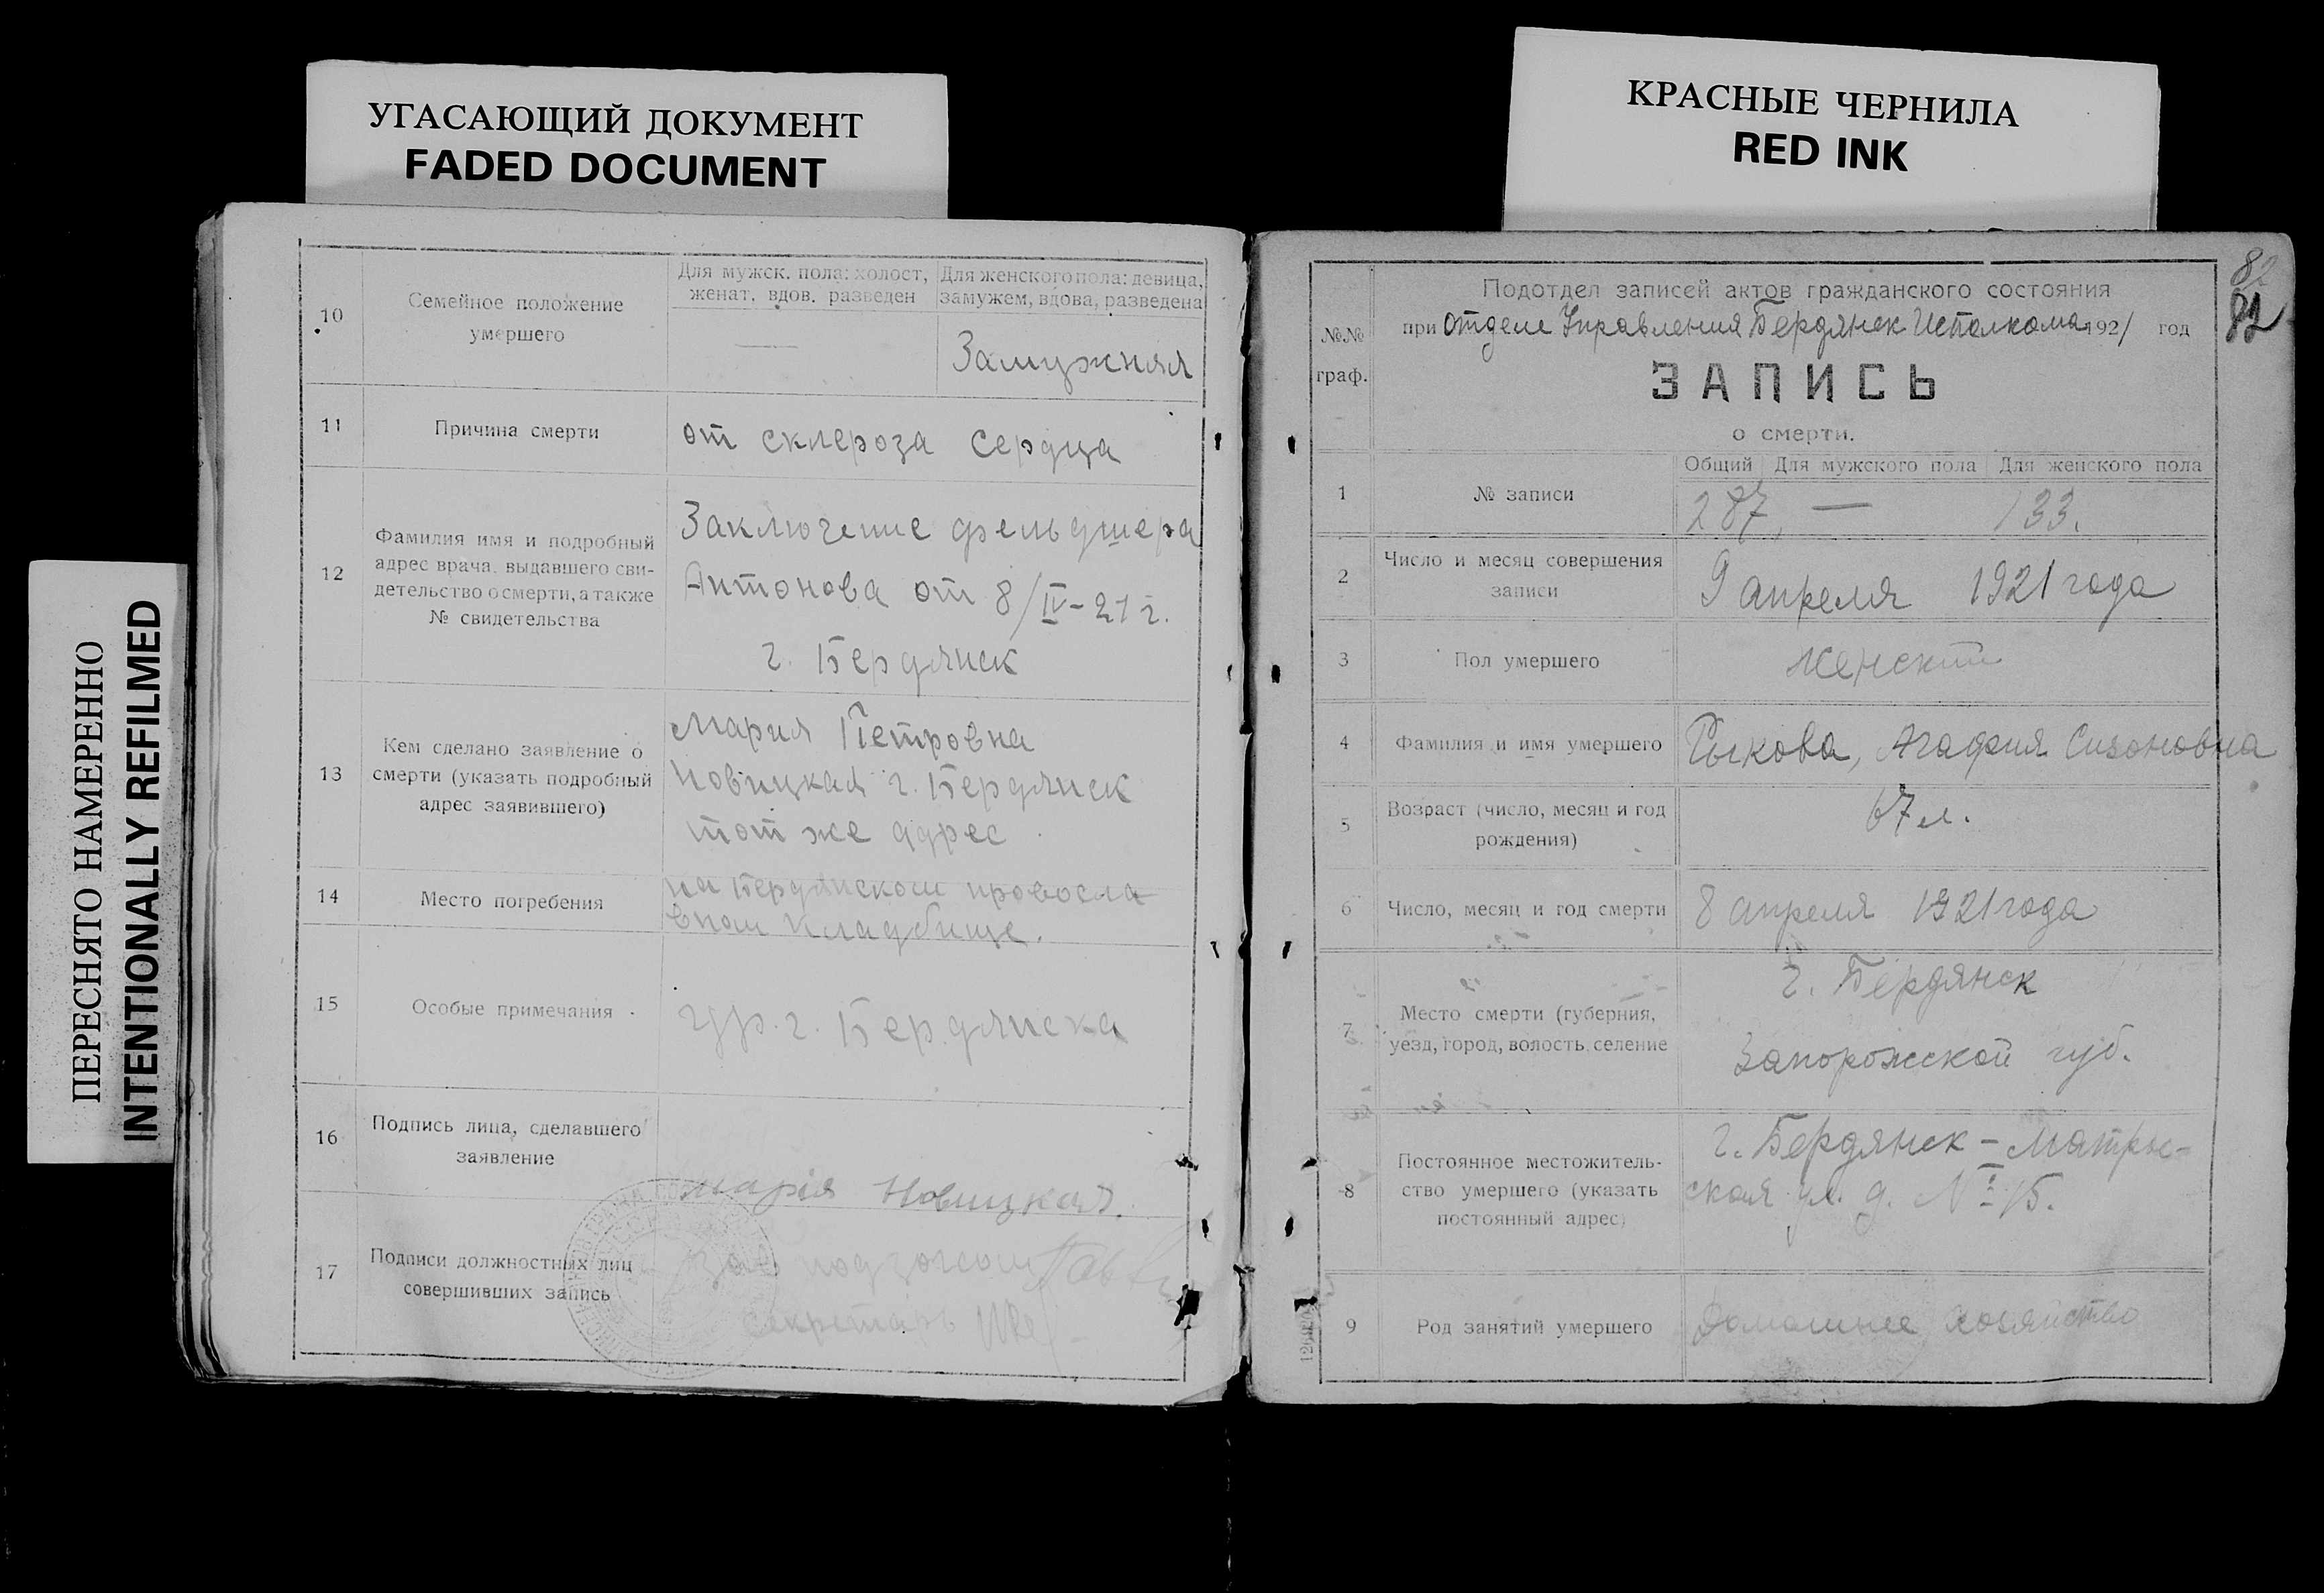 УГАСАЮЩИЙ ДОКУМЕНТ
FADED DOCUMENT
КРАСНЫЕ ЧЕРНИЛА
RED INK
ПЕРЕСНЯТО НАМЕРЕННО
INTENTIONALLY REFILMED
10
Семейное положение
умершего
Для мужск. пола: холост,
женат, вдов. разведен
Для женского пола: девица,
замужем, вдова, разведена
—
Замужняя
11
Причина смерти
от склероза сердца
12
Фамилия имя и подробный
адрес врача, выдавшего сви-
детельство о смерти, а также
№ свидетельства
Заключение фельдшера
Антонова от 8/IV-21 г.
г. Бердянск
13
Кем сделано заявление о
смерти (указать подробный
адрес заявившего)
Мария Петровна
Новицкая г. Бердянск
тот же адрес
14
Место погребения
на Бердянском провосла
вном кладбище.
15
Особые примечания
гр. г. Бердянска
16
Подпись лица, сделавшего
заявление
Марія Новицкая.
17
Подписи должностных лиц
совершивших запись
Зав
Секретарь
82
82
№№
граф.
Подотдел записей актов гражданского состояния
при Отделе Управления Бердянск Исполкома 1921 год
ЗАПИСЬ
о смерти.
1
№ записи
Общий Для мужского пола Для женского пола
287, — 133.
2
Число и месяц совершения
записи
9 апреля 1921 года
3
Пол умершего
Женский
4
Фамилия и имя умершего
Рыкова, Агафия Сизоновна
5
Возраст (число, месяц и год
рождения)
67 л.
6
Число, месяц и год смерти
8 апреля 1921 года
7
Место смерти (губерния,
уезд, город, волость, селение
г. Бердянск
Запорожской губ.
8
Постоянное местожитель-
ство умершего (указать
постоянный адрес)
г. Бердянск –
ская ул. д. № 15.
9
Род занятий умершего
Домашнее хозяйство